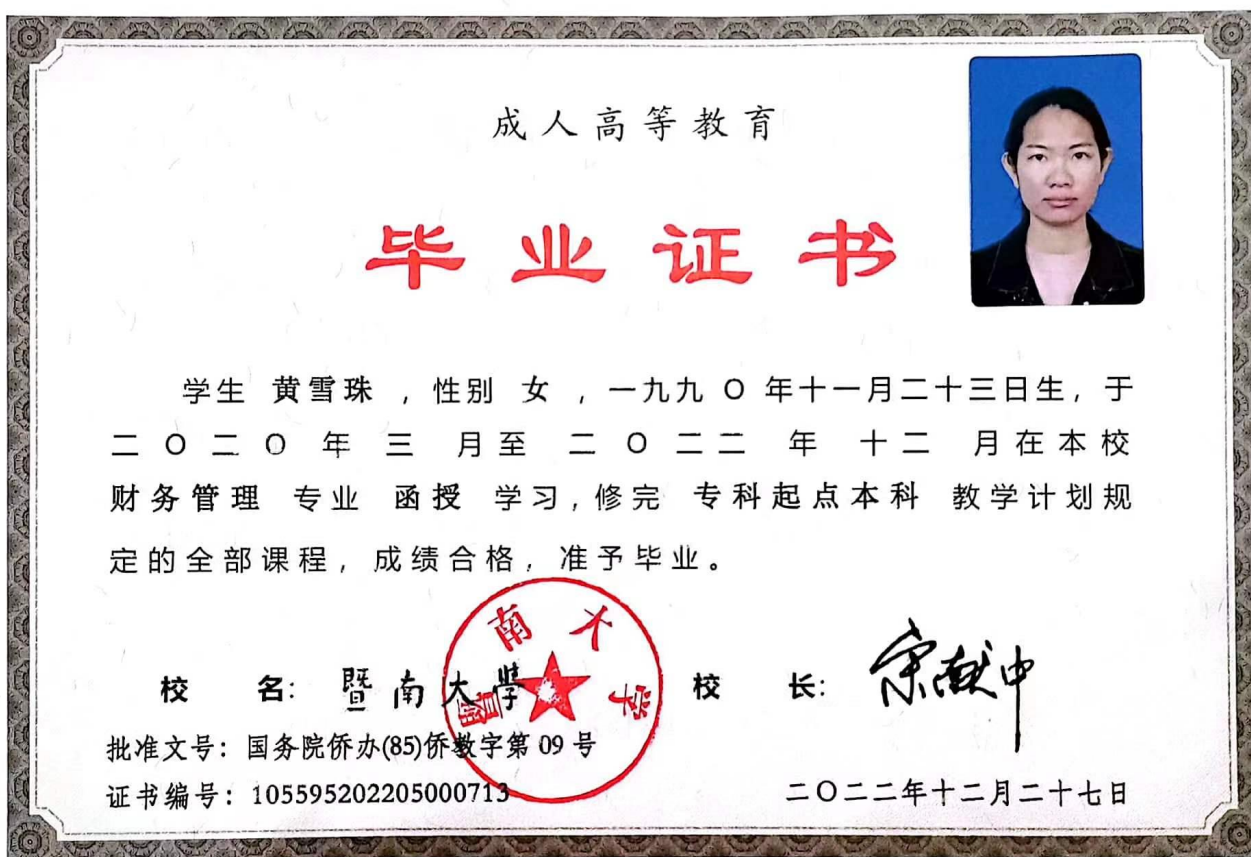 成人高等教育
毕业证书
学生 黄雪珠 ，性别 女 ，一九九〇年十一月二十三日生，于
二〇二〇年 三 月至 二〇二二 年 十二 月在本校
财务管理 专业 函授 学习，修完 专科起点本科 教学计划规
定的全部课程，成绩合格，准予毕业。
校 名：暨南大學 校 长：宋献中
暨南大学
批准文号：国务院侨办(85)侨教字第 09 号
证书编号：105595202205000713 二〇二二年十二月二十七日